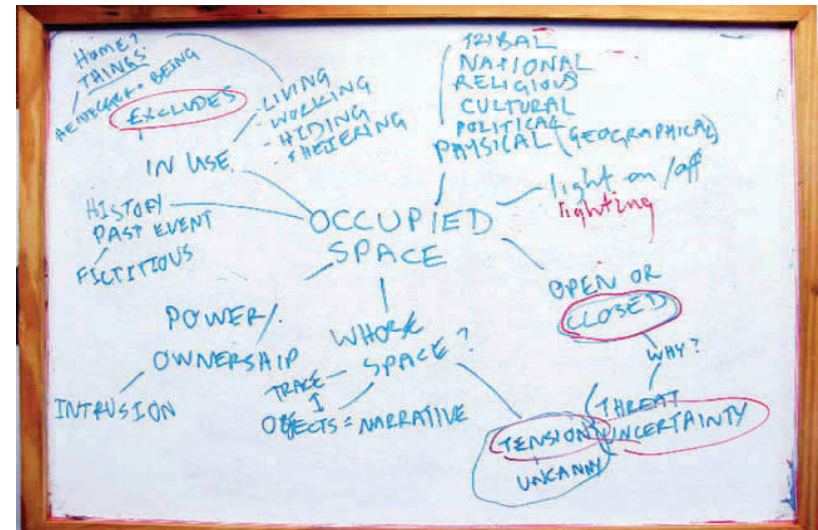 HOME?
THINGS
HEIDEGGER · BEING
EXCLUDES
- LIVING
- WORKING
- HIDING
- SHELTERING
IN USE
TRIBAL
NATIONAL
RELIGIOUS
CULTURAL
POLITICAL
PHYSICAL (GEOGRAPHICAL)
light on/off
lighting
HISTORY
PAST EVENT
FICTITIOUS
OCCUPIED
SPACE
OPEN OR
CLOSED
WHY?
POWER/
OWNERSHIP
INTRUSION
WHOSE
SPACE?
TRACE
OBJECTS = NARRATIVE
THREAT
TENSION
UNCERTAINTY
UNCANNY